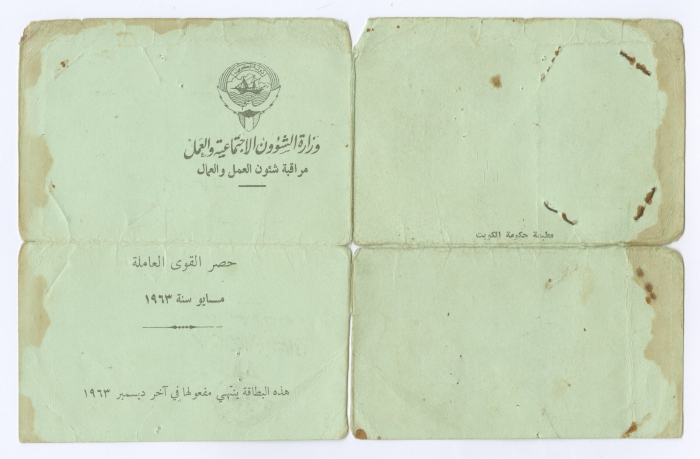 وزارة الشؤون الاجتماعية والعمل
مراقبة شئون العمل والعمال
مطبعة حكومة الكويت
حصر القوى العاملة
مايو سنة ١٩٦٣
هذه البطاقة ينتهي مفعولها في آخر ديسمبر ١٩٦٣